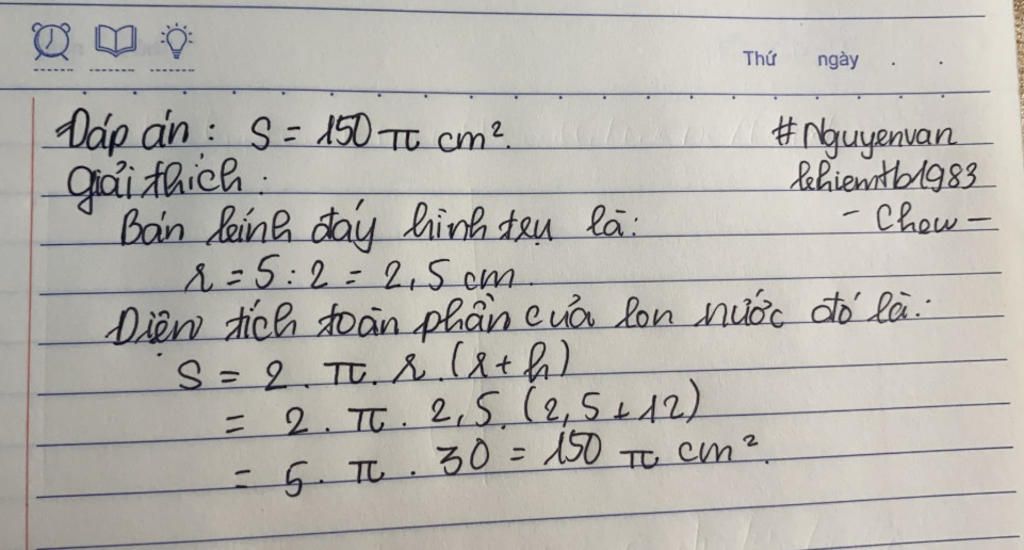 Thứ ngày . .
Đáp án : S = 150 π cm². #Nguyenvan
Giải thích : khiemtb1983
Bán kính đáy hình trụ là: - Chew -
r = 5 : 2 = 2,5 cm.
Diện tích toàn phần của lon nước đó là:
S = 2 . π . r . (r + h)
= 2 . π . 2,5 . (2,5 + 12)
= 5 . π . 30 = 150 π cm².